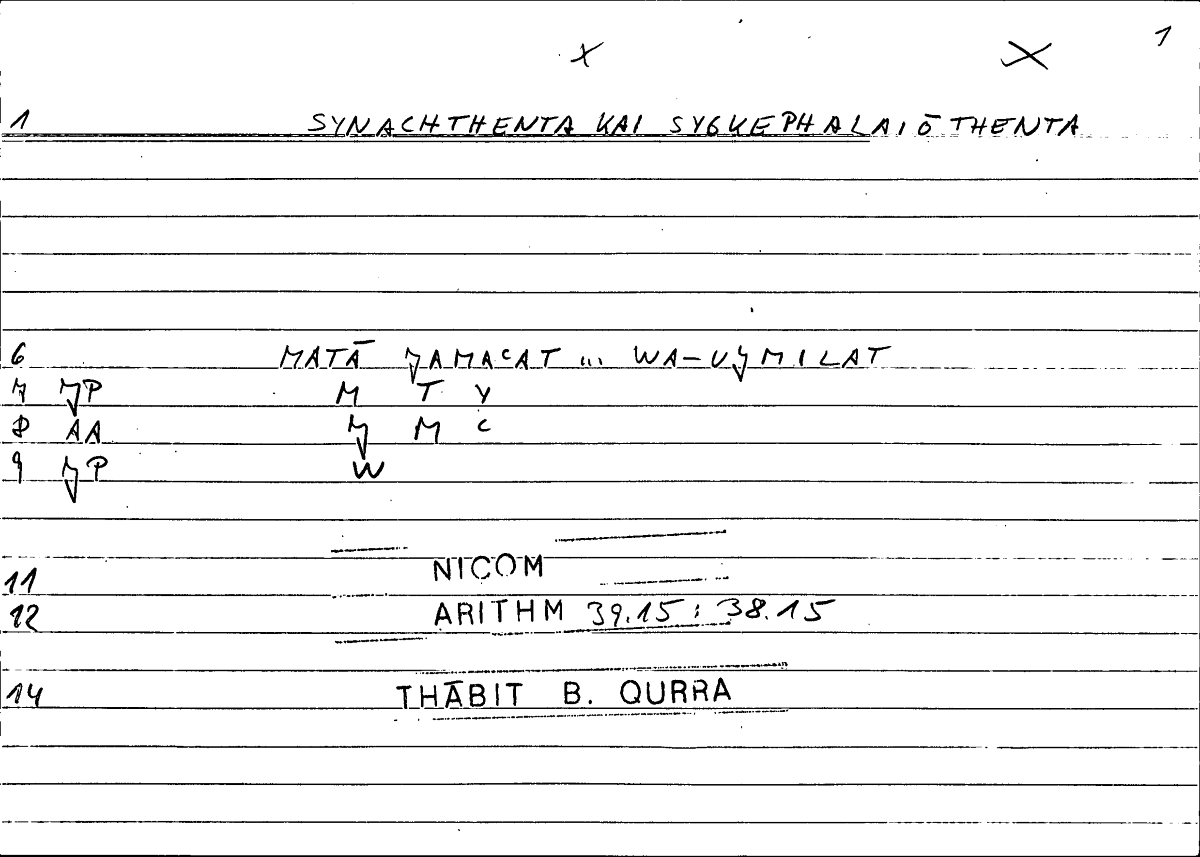 X X 1
1 SYNACHTHENTA KAI SYGKEPHALAIŌTHENTA
6 MATĀ JAMAᶜAT ... WA-UJMILAT
7 JP M T Y
8 AA J M C
9 JP W
11 NICOM
12 ARITHM 39.15 : 38.15
14 THĀBIT B. QURRA